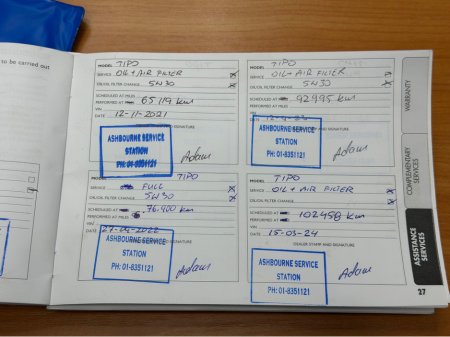 to be carried out
MODEL TIPO
SERVICE OIL + AIR FILTER
OIL/OIL FILTER CHANGE 5W30
SCHEDULED AT MILES
PERFORMED AT MILES 65119 km
VIN
DATE 12-11-2021
ASHBOURNE SERVICE
STATION
PH: 01-8351121
Adam
MODEL TIPO
SERVICE OIL + AIR FILTER
OIL/OIL FILTER CHANGE 5W30
SCHEDULED AT MILES
PERFORMED AT MILES 92995 km
VIN
DATE
ASHBOURNE SERVICE
STATION
PH: 01-8351121
Adam
MODEL TIPO
SERVICE FULL
OIL/OIL FILTER CHANGE 5W30
SCHEDULED AT
PERFORMED AT MILES 76.400 km
VIN
DATE 27-09-2022
ASHBOURNE SERVICE
STATION
PH: 01-8351121
Adam
MODEL TIPO
SERVICE OIL + AIR FILTER
OIL/OIL FILTER CHANGE 5W30
SCHEDULED AT
PERFORMED AT MILES 102458 km
VIN
DATE 15-03-24
DEALER STAMP AND SIGNATURE
ASHBOURNE SERVICE
STATION
PH: 01-8351121
Adam
WARRANTY
COMPLEMENTARY
SERVICES
ASSISTANCE
SERVICES
27